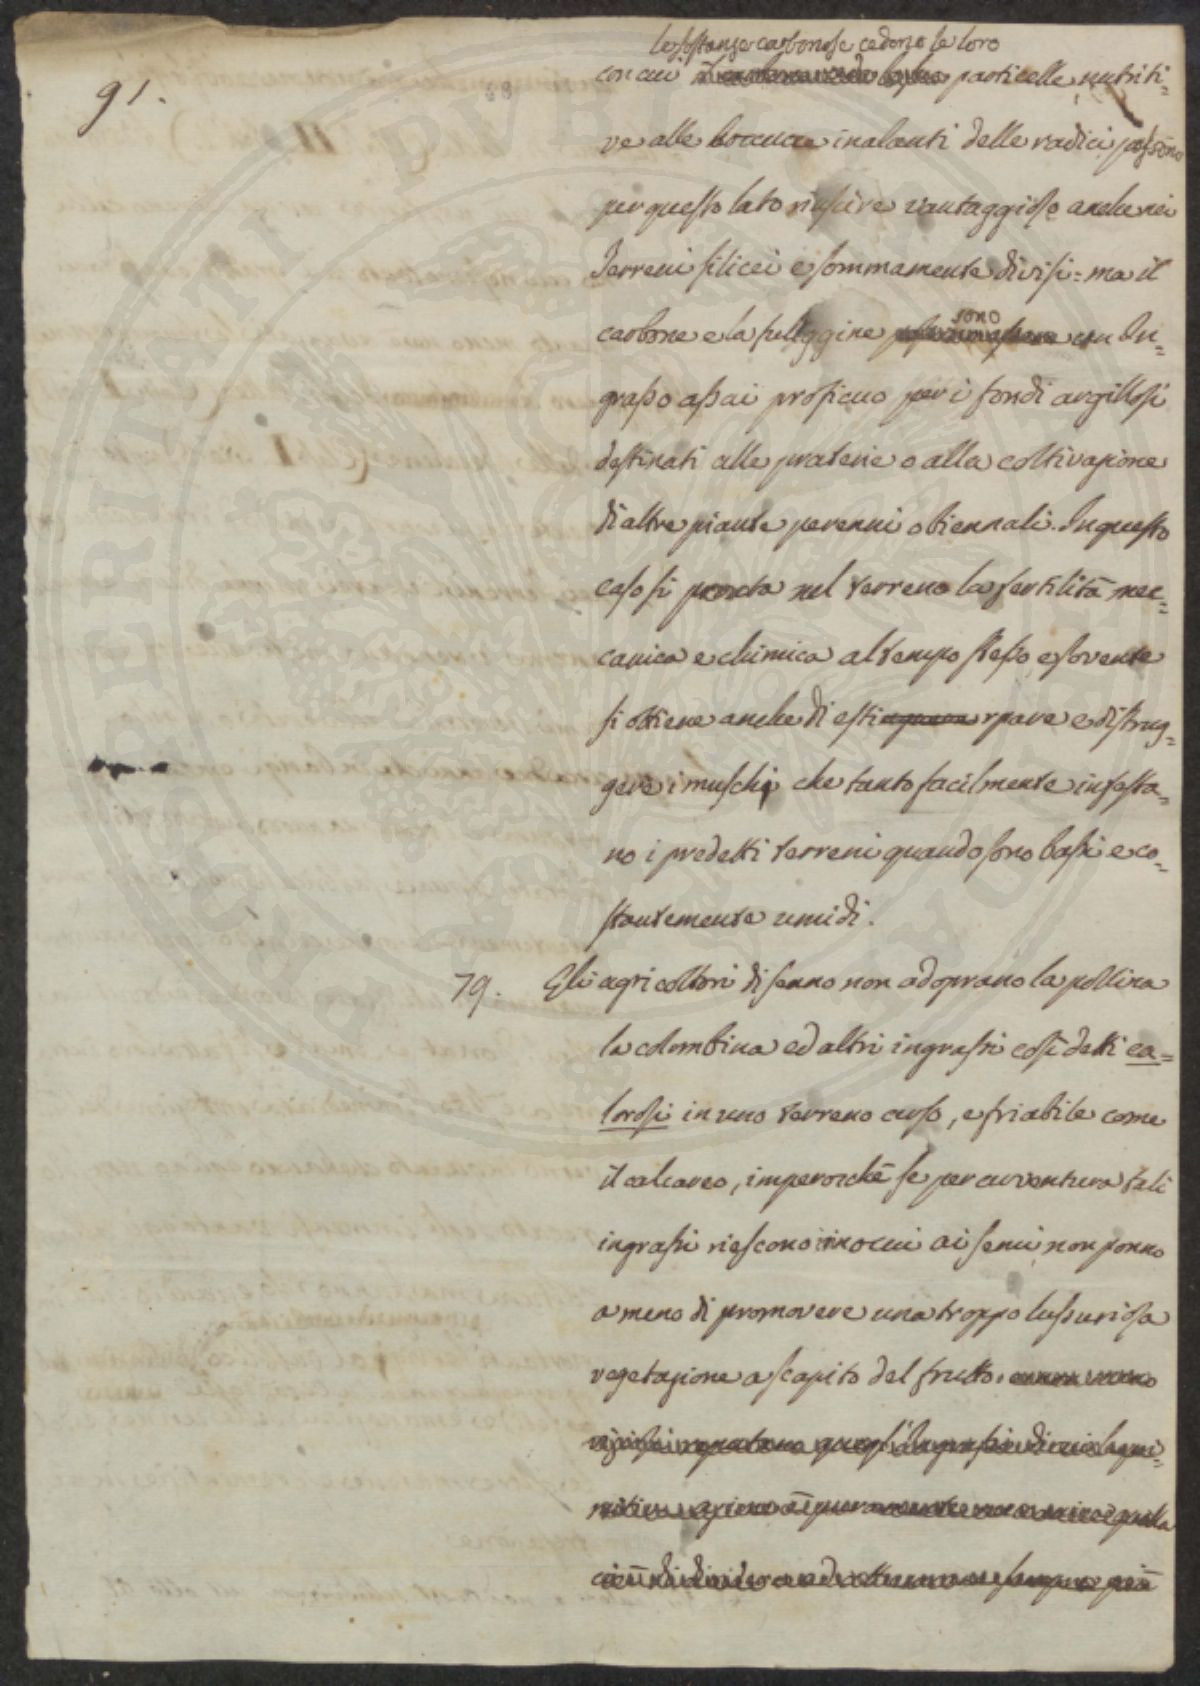 91.
le sostanze carbonose cedono le loro
con cui particelle nutriti=
ve alle boccucce inalanti delle radici possono
per questo lato riuscire vantaggiose anche nei
Terreni silicei e sommamente divisi = ma il
sono
carbone e la fuliggine un In=
grasso assai proficuo per i fondi argillosi
destinati alle praterie o alla coltivazione
di altre piante perenni o biennali. In questo
caso si procura nel terreno la fertilità mec=
canica e chimica al tempo stesso, e sovente
si ottiene anche di esti rpare e distrug=
gere i muschi che tanto facilmente infesta=
no i predetti terreni quando sono bassi e co=
stantemente umidi.
79. Gli agricoltori di senno non adoprano la pollina
la colombina ed altri ingrassi così detti ca=
lorosi in uno terreno arso, e friabile come
il calcareo, imperocchè se per avventura tali
ingrassi riescono inocui ai semi, non ponno
a meno di promovere una troppo lussuriosa
vegetazione a scapito del frutto.
PUBLICAE PROSPERITATI